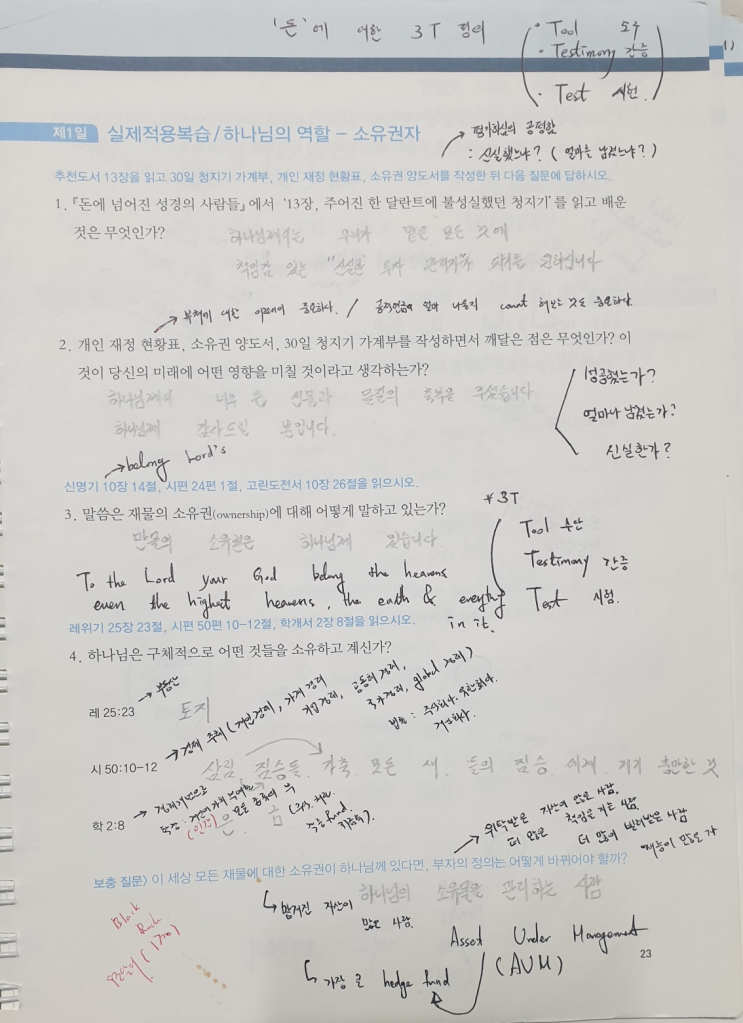 '돈'에 대한 3T 정리
· Tool 도구
· Testimony 간증
· Test 시험
제1일 실제적용복습/하나님의 역할 – 소유권자
평가하심의 공정함
: 신실했느냐? (얼마를 남겼느냐?)
추천도서 13장을 읽고 30일 청지기 가계부, 개인 재정 현황표, 소유권 양도서를 작성한 뒤 다음 질문에 답하시오.
1. 『돈에 넘어진 성경의 사람들』에서 '13장, 주어진 한 달란트에 불성실했던 청지기'를 읽고 배운
것은 무엇인가? 하나님께서는 우리가 맡은 모든 것에
책임감 있는 "신실한 투자 관리자"가 되기를 원하십니다
부채에 대한 open이 중요하다. / 국민연금이 얼마 나올지 count 해보는 것도 중요하다.
2. 개인 재정 현황표, 소유권 양도서, 30일 청지기 가계부를 작성하면서 깨달은 점은 무엇인가? 이
것이 당신의 미래에 어떤 영향을 미칠 것이라고 생각하는가?
하나님께서 너무 큰 선물과 물질의 축복을 주셨습니다.
하나님께 감사드릴 뿐입니다.
성공했는가?
얼마나 남겼는가?
신실한가?
belong Lord's
신명기 10장 14절, 시편 24편 1절, 고린도전서 10장 26절을 읽으시오.
3. 말씀은 재물의 소유권(ownership)에 대해 어떻게 말하고 있는가?
만물의 소유권은 하나님께 있습니다
* 3T
Tool 수단
Testimony 간증
Test 시험.
To the Lord your God belong the heavens
even the highest heavens, the earth & everything
in it.
레위기 25장 23절, 시편 50편 10-12절, 학개서 2장 8절을 읽으시오.
4. 하나님은 구체적으로 어떤 것들을 소유하고 계신가?
부동산
레 25:23 토지
경제 주체 (개인경제, 가계경제
기업경제, 공동체경제,
국가경제, global 경제)
시 50:10-12 삼림, 짐승들, 가축 모든 새, 들의 짐승 세계, 거기 충만한 것
학 2:8 은, 금
(인간) 모든 종류의 부
위탁받은 자산이 많은 사람.
더 많은 책임을 지는 사람
더 많이 빌려받은 사람
보충 질문〉 이 세상 모든 재물에 대한 소유권이 하나님께 있다면, 부자의 정의는 어떻게 바뀌어야 할까?
하나님의 소유물을 관리하는 사람
맡겨진 자산이
많은 사람.
Black
Rock
Asset Under Management
(AUM)
가장 큰 hedge fund
23